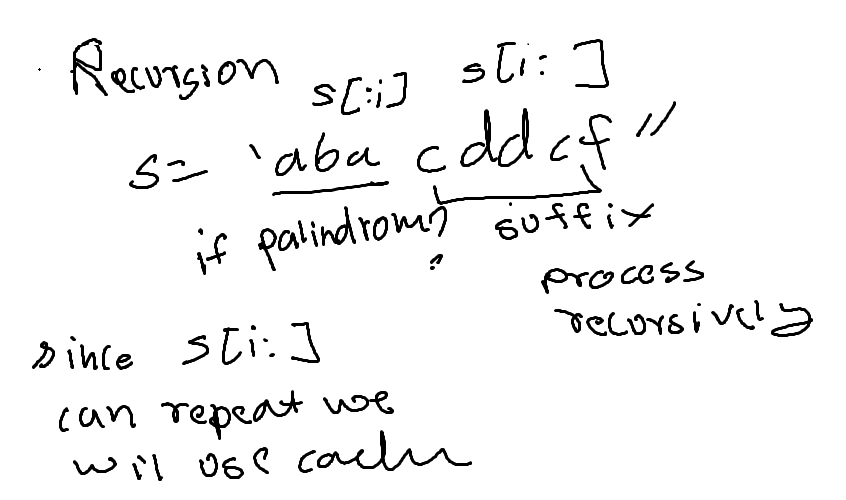 Recursion
s[:i] s[i:]
s= 'aba cddcf"
if palindrom? suffix
process
recursively
since s[i:]
can repeat we
wil use cache